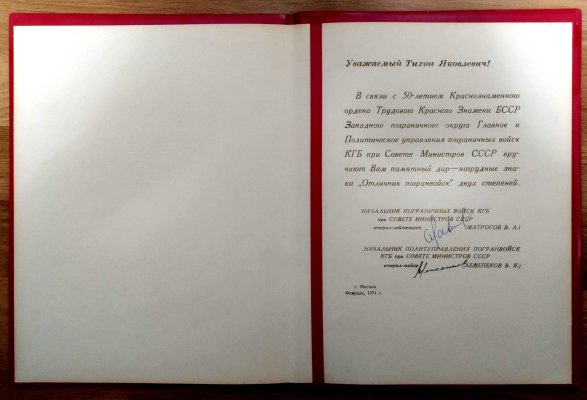 Уважаемый Тихон Яковлевич!
В связи с 50-летием Краснознаменного
ордена Трудового Красного Знамени БССР
Западного пограничного округа Главное и
Политическое управления пограничных войск
КГБ при Совете Министров СССР вру-
чают Вам памятный дар—нагрудные зна-
ки „Отличник погранвойск" двух степеней.
НАЧАЛЬНИК ПОГРАНИЧНЫХ ВОЙСК КГБ
при СОВЕТЕ МИНИСТРОВ СССР
генерал-лейтенант (МАТРОСОВ В. А.)
НАЧАЛЬНИК ПОЛИТУПРАВЛЕНИЯ ПОГРАНВОЙСК
КГБ при СОВЕТЕ МИНИСТРОВ СССР
генерал-майор (ЛЕЖЕПЕКОВ В. Я.)
г. Москва
Февраль, 1974 г.